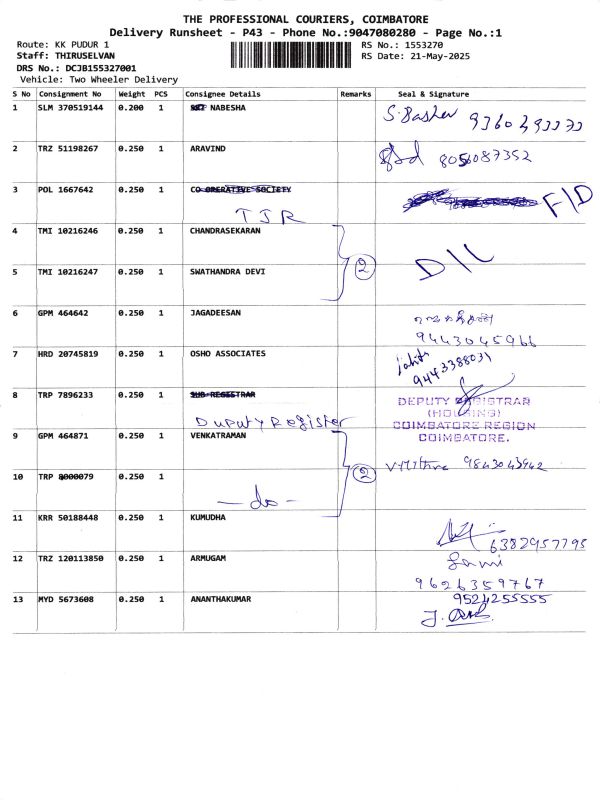 THE PROFESSIONAL COURIERS, COIMBATORE
Delivery Runsheet - P43 - Phone No.:9047080280 - Page No.:1
Route: KK PUDUR 1
Staff: THIRUSELVAN
DRS No.: DCJB155327001
Vehicle: Two Wheeler Delivery
RS No.: 1553270
RS Date: 21-May-2025
S No Consignment No Weight PCS Consignee Details Remarks Seal & Signature
1 SLM 370519144 0.200 1 NABESHA
S. Basher
2 TRZ 51198267 0.250 1 ARAVIND
8056087352
3 POL 1667642 0.250 1 CO-OPERATIVE SOCIETY
TJR
F/D
4 TMI 10216246 0.250 1 CHANDRASEKARAN
D/L
2
5 TMI 10216247 0.250 1 SWATHANDRA DEVI
6 GPM 464642 0.250 1 JAGADEESAN
9443045966
7 HRD 20745819 0.250 1 OSHO ASSOCIATES
9443388031
8 TRP 7896233 0.250 1 SUB REGISTRAR
Duputy Register
DEPUTY REGISTRAR
(HOUSING)
COIMBATORE REGION
COIMBATORE.
9 GPM 464871 0.250 1 VENKATRAMAN
9843043942
2
10 TRP 8000079 0.250 1
- do -
11 KRR 50188448 0.250 1 KUMUDHA
6382957795
12 TRZ 120113850 0.250 1 ARMUGAM
9626359767
13 MYD 5673608 0.250 1 ANANTHAKUMAR
9524255555